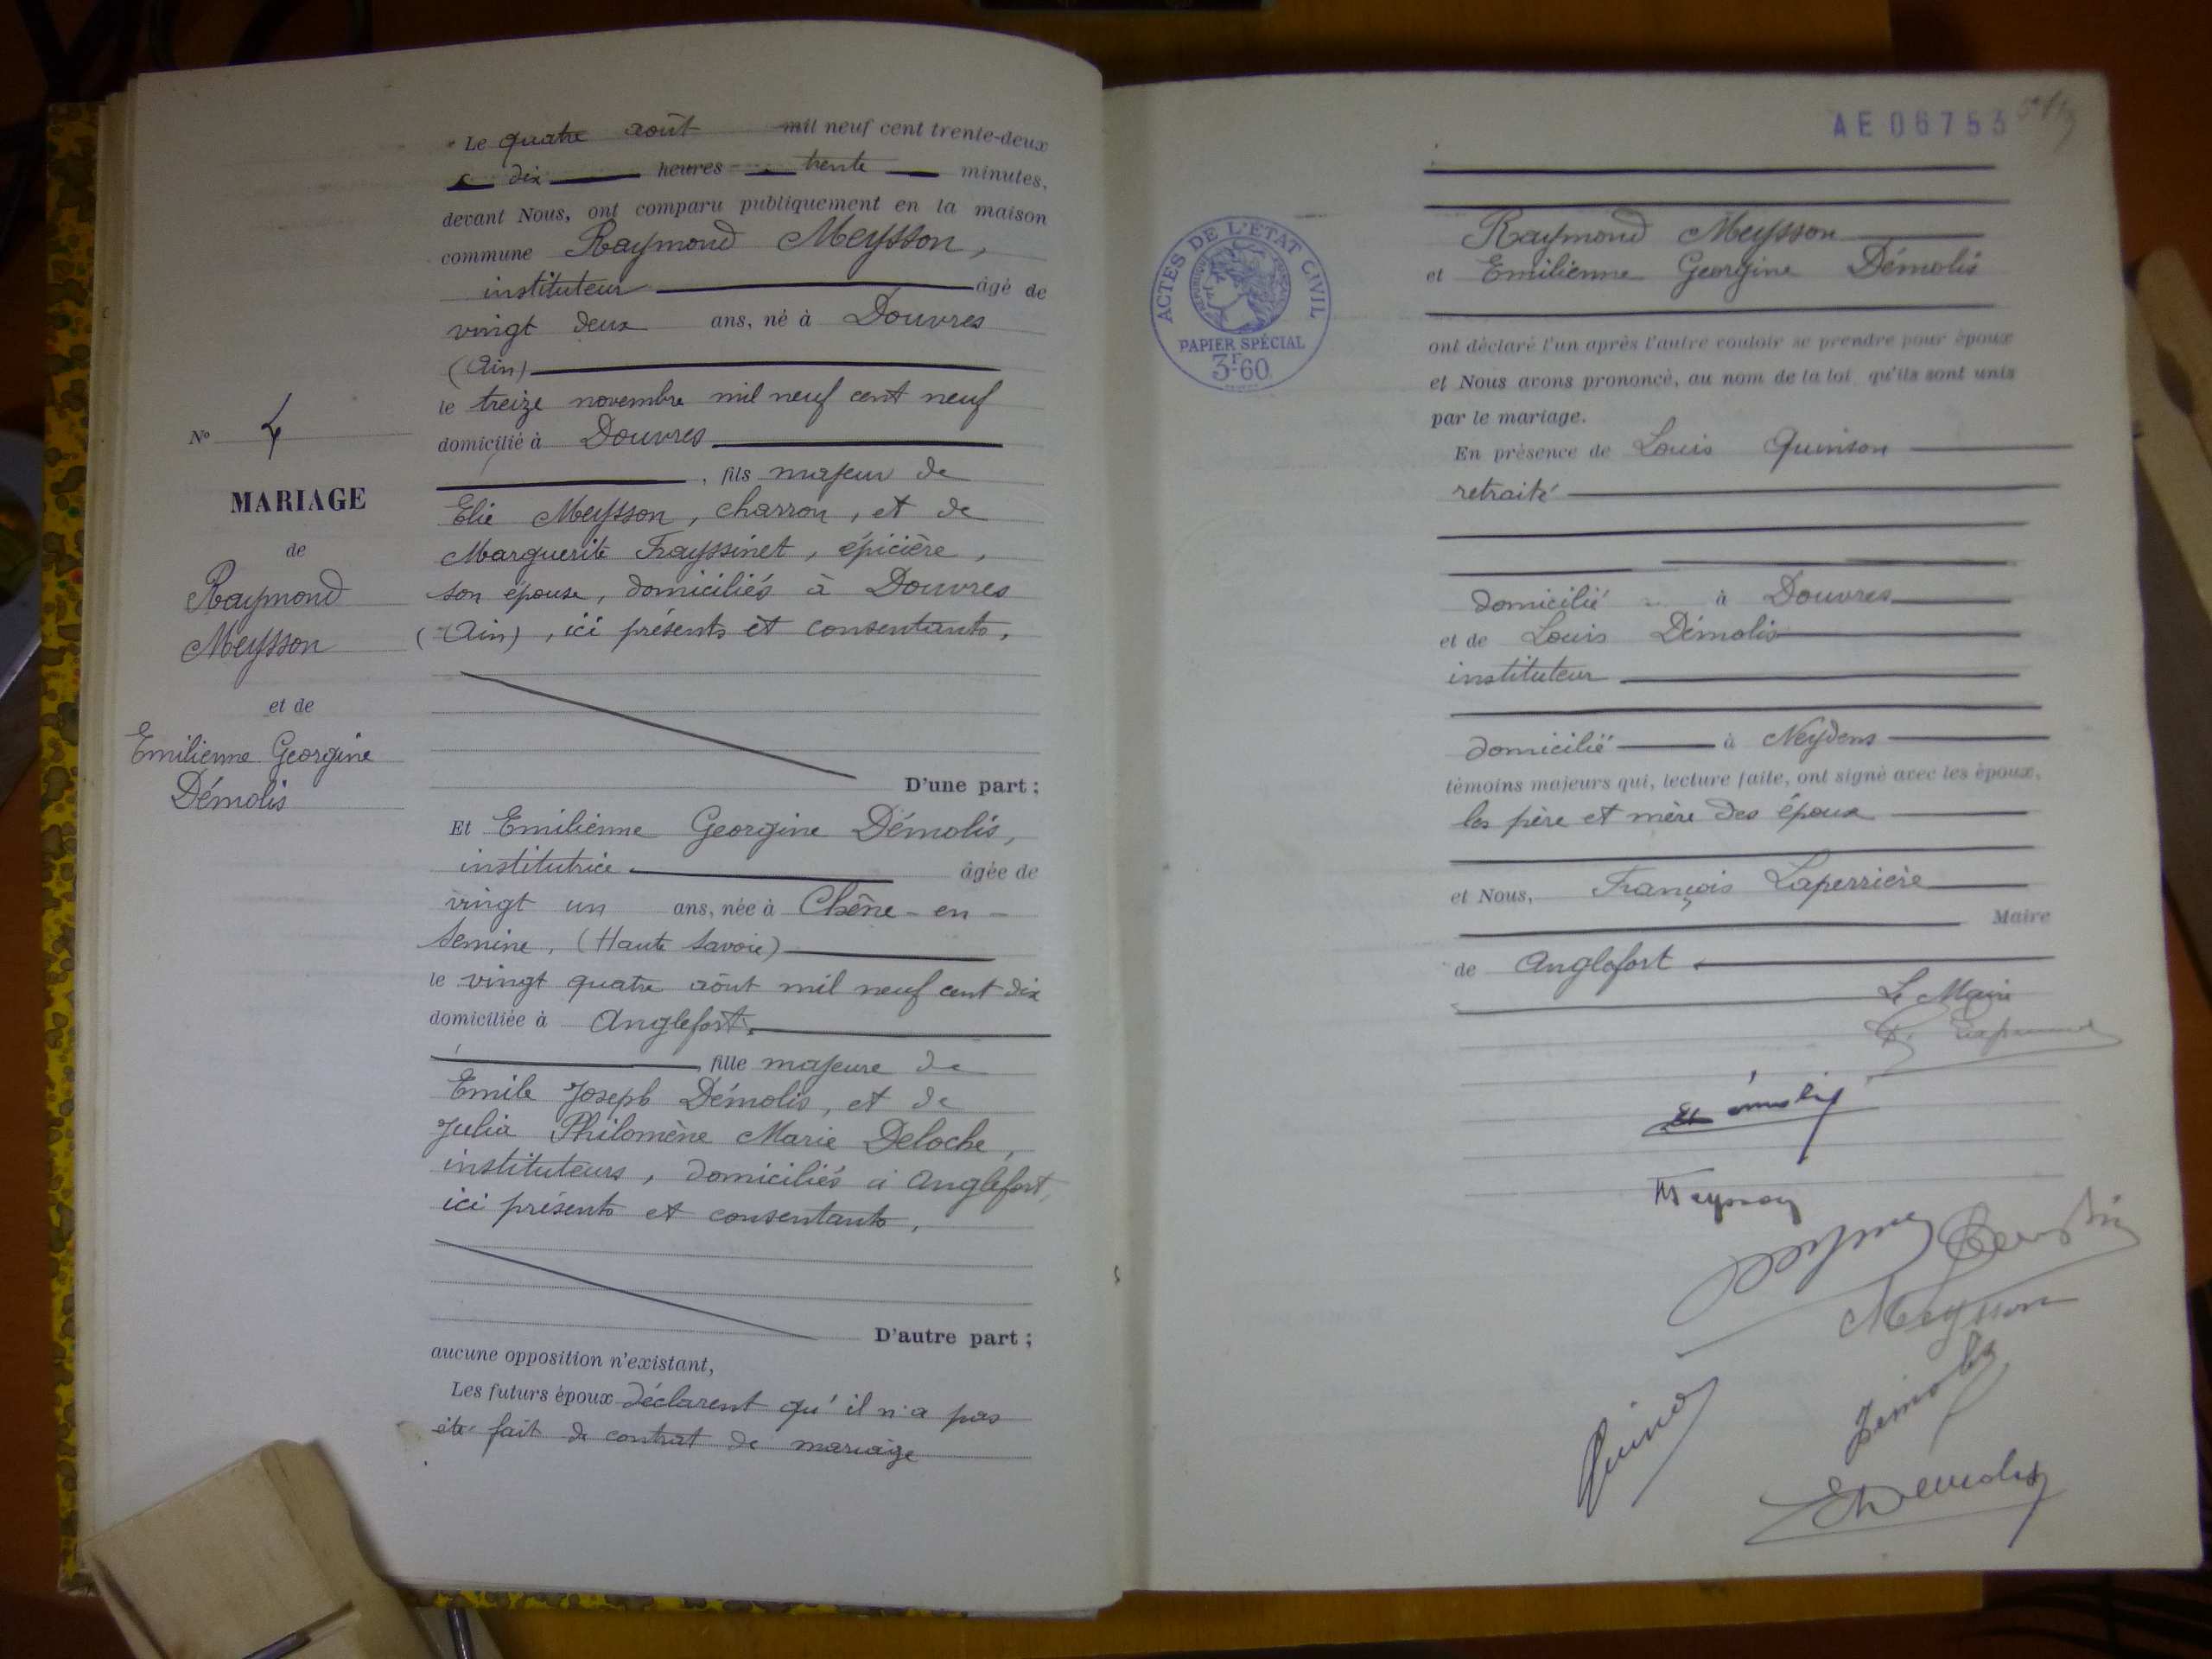 Le quatre août mil neuf cent trente-deux
à dix heures trente minutes,
devant Nous, ont comparu publiquement en la maison
commune Raymond Meysson,
instituteur âgé de
vingt deux ans, né à Douvres
(Ain)
le treize novembre mil neuf cent neuf
domicilié à Douvres
, fils majeur de
Elie Meysson, charron, et de
Marguerite Frayssinet, épicière,
son épouse, domiciliés à Douvres
(Ain), ici présents et consentants,
D'une part ;
Nº 4
MARIAGE
de
Raymond
Meysson
et de
Emilienne Georgine
Démolis
Et Emilienne Georgine Démolis,
institutrice âgée de
vingt un ans, née à Chêne-en-
Semine, (Haute Savoie)
le vingt quatre août mil neuf cent dix
domiciliée à Anglefort,
, fille majeure de
Emile Joseph Démolis, et de
Julia Philomène Marie Deloche,
instituteurs, domiciliés à Anglefort,
ici présents et consentants,
D'autre part ;
aucune opposition n'existant,
Les futurs époux déclarent qu'il n'a pas
été fait de contrat de mariage
AE 06753
ACTES DE L'ÉTAT CIVIL
RÉPUBLIQUE FRANÇAISE
PAPIER SPÉCIAL
3F60
Raymond Meysson
et Emilienne Georgine Démolis
ont déclaré l'un après l'autre vouloir se prendre pour époux
et Nous avons prononcé, au nom de la loi qu'ils sont unis
par le mariage.
En présence de Louis Quinson
retraité
domicilié à Douvres
et de Louis Démolis
instituteur
domicilié à Neydens
témoins majeurs qui, lecture faite, ont signé avec les époux,
les père et mère des époux
et Nous, François Laperrière
Maire
de Anglefort
Le Maire
Meysson
Meysson
Démolis